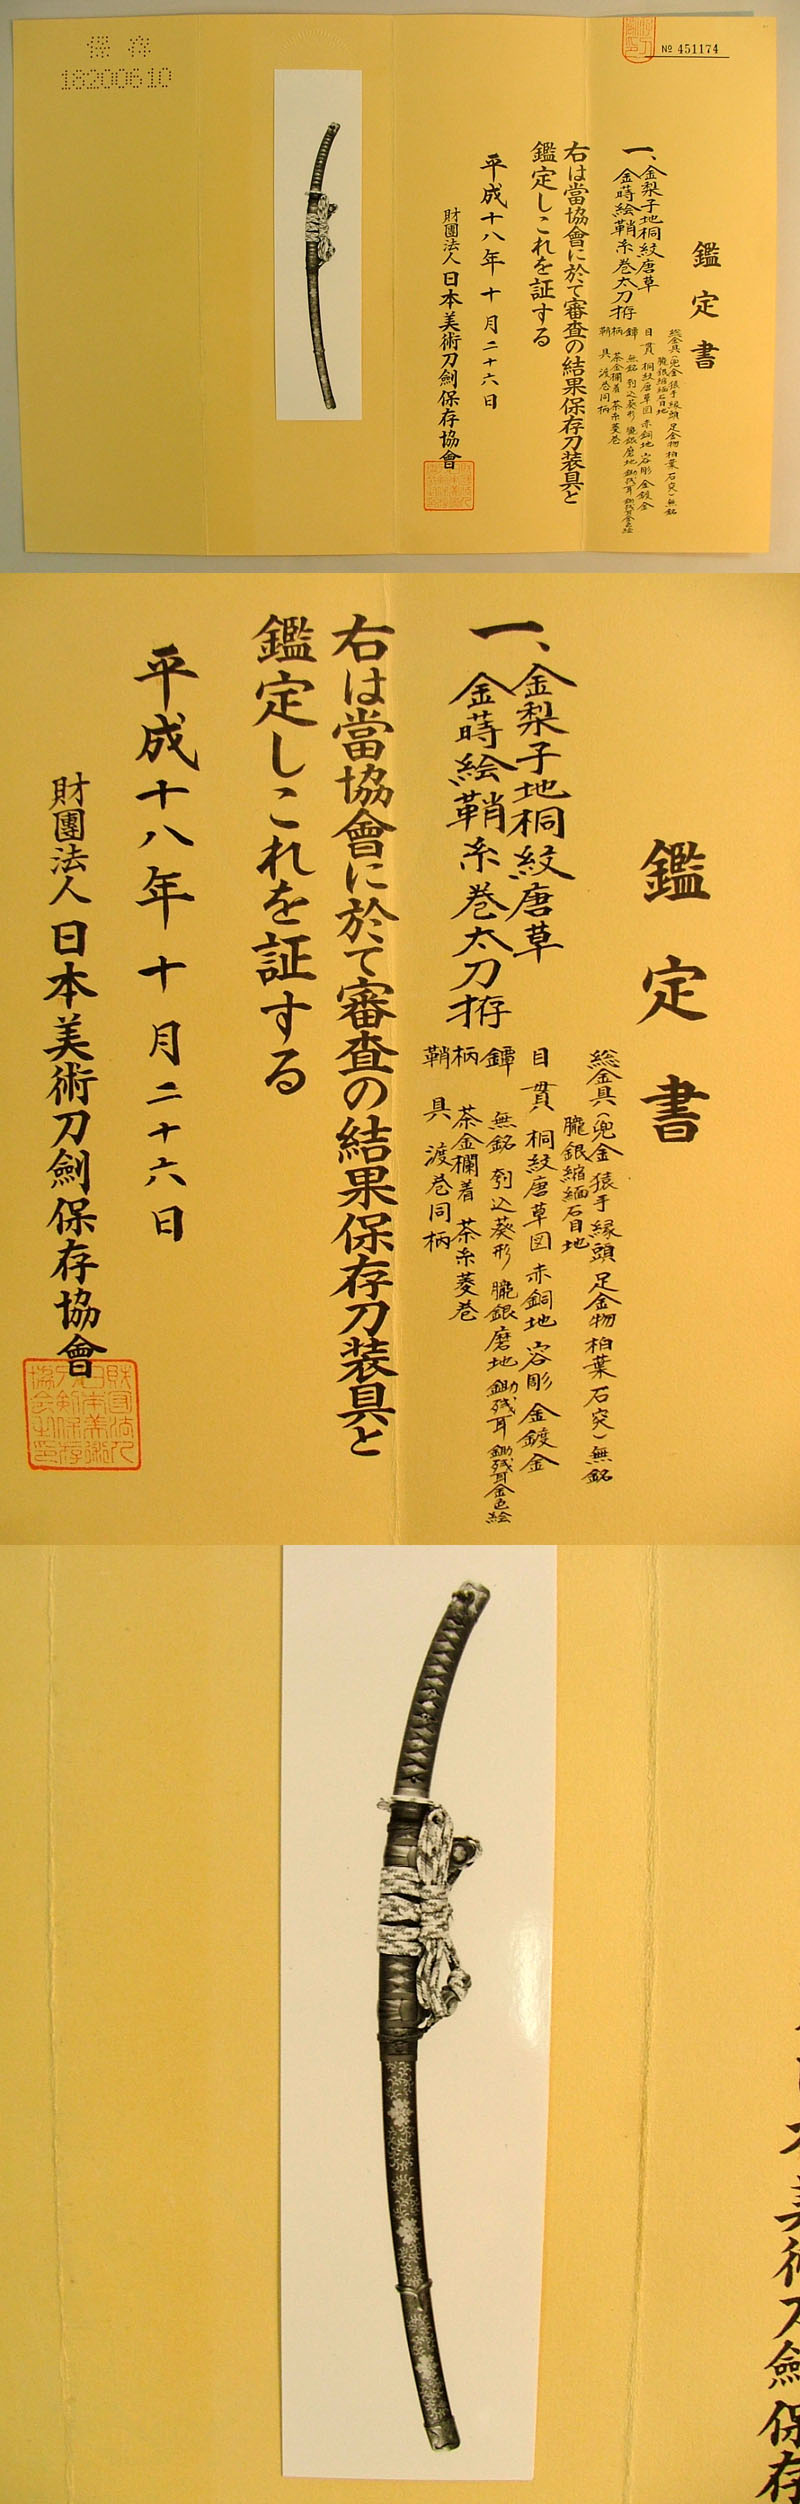 保存
18200610
№ 451174
鑑定書
一、金梨子地桐紋唐草
金蒔絵鞘糸巻太刀拵
総金具(兜金 猿手 縁頭 足金物 柏葉 石突)無銘
朧銀縮緬石目地
目貫 桐紋唐草図 赤銅地 容彫 金鍍金
鐔 無銘 刳込葵形 朧銀磨地 鋤残耳 鋤残耳金色絵
柄 茶金襴着 茶糸菱巻
鞘 具 渡巻同柄
右は當協會に於て審査の結果保存刀装具と
鑑定しこれを証する
平成十八年十月二十六日
財團法人日本美術刀劍保存協會
鑑定書
一、金梨子地桐紋唐草
金蒔絵鞘糸巻太刀拵
総金具(兜金 猿手 縁頭 足金物 柏葉 石突)無銘
朧銀縮緬石目地
目貫 桐紋唐草図 赤銅地 容彫 金鍍金
鐔 無銘 刳込葵形 朧銀磨地 鋤残耳 鋤残耳金色絵
柄 茶金襴着 茶糸菱巻
鞘 具 渡巻同柄
右は當協會に於て審査の結果保存刀装具と
鑑定しこれを証する
平成十八年十月二十六日
財團法人日本美術刀劍保存協會
本美術刀劍保存